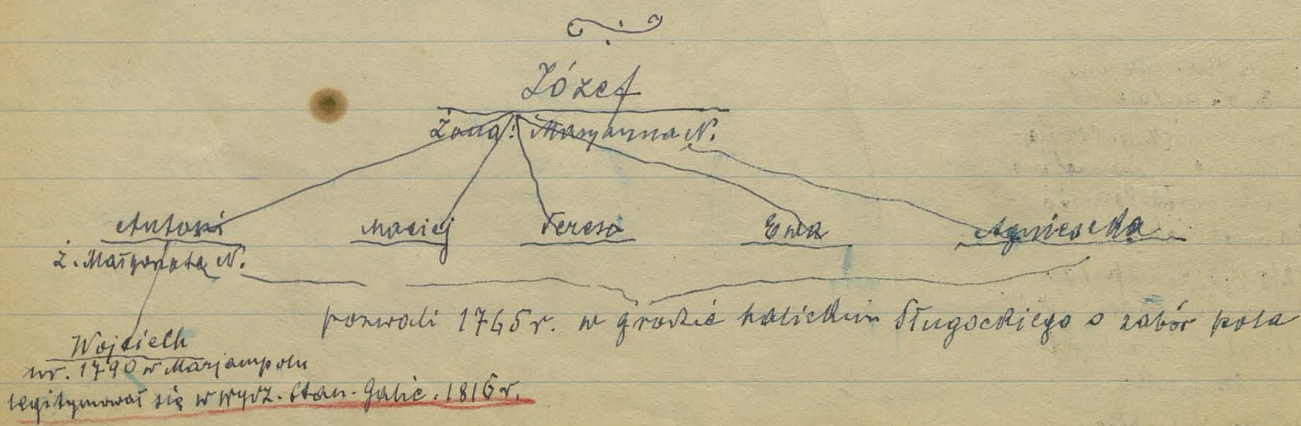 Józef
Żona: Maryanna N.
Antoni Maciej Teresa Ewa Agnieszka
Ż. Małgorzata N.
pozwali 1765 r. w grodzie halickim Długockiego o zabór pola
Wojciech
ur. 1790 w Marjampolu
legitymował się w Wydz. Stan. Galic. 1816 r.